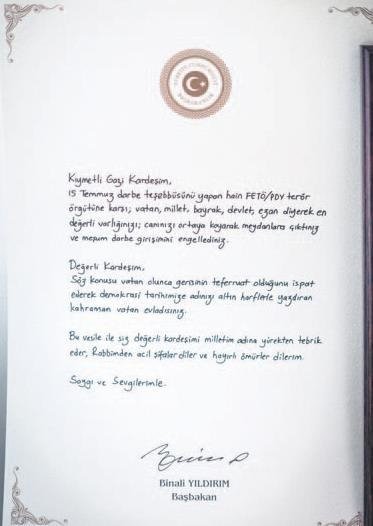 TÜRKİYE CUMHURİYETİ
BAŞBAKANLIK
Kıymetli Gazi Kardeşim,
15 Temmuz darbe teşebbüsünü yapan hain FETÖ/PDY terör
örgütüne karşı; vatan, millet, bayrak, devlet, ezan diyerek en
değerli varlığınızı; canınızı ortaya koyarak meydanlara çıktınız
ve meşum darbe girişimini engellediniz.
Değerli Kardeşim,
Söz konusu vatan olunca gerisinin teferruat olduğunu ispat
ederek demokrasi tarihimize adınızı altın harflerle yazdıran
kahraman vatan evladısınız.
Bu vesile ile siz değerli kardeşimi milletim adına yürekten tebrik
eder, Rabbimden acil şifalar diler ve hayırlı ömürler dilerim.
Saygı ve Sevgilerimle.
Binali YILDIRIM
Başbakan